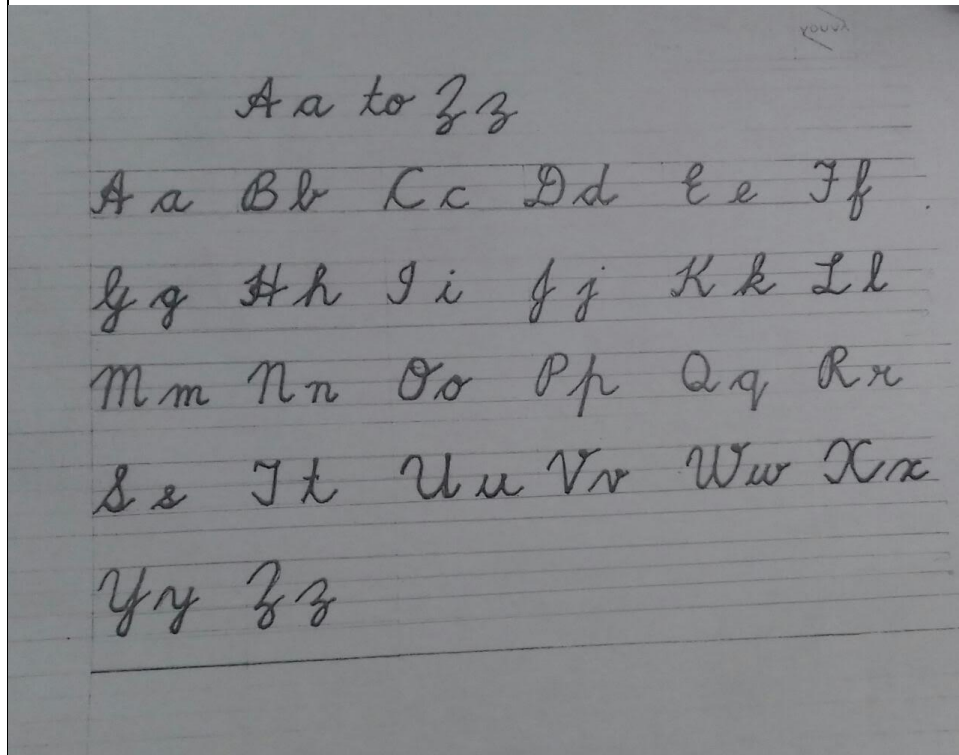 Aa to Zz
Aa Bb Cc Dd Ee Ff
Gg Hh Ii Jj Kk Ll
Mm Nn Oo Pp Qq Rr
Ss Tt Uu Vv Ww Xx
Yy Zz